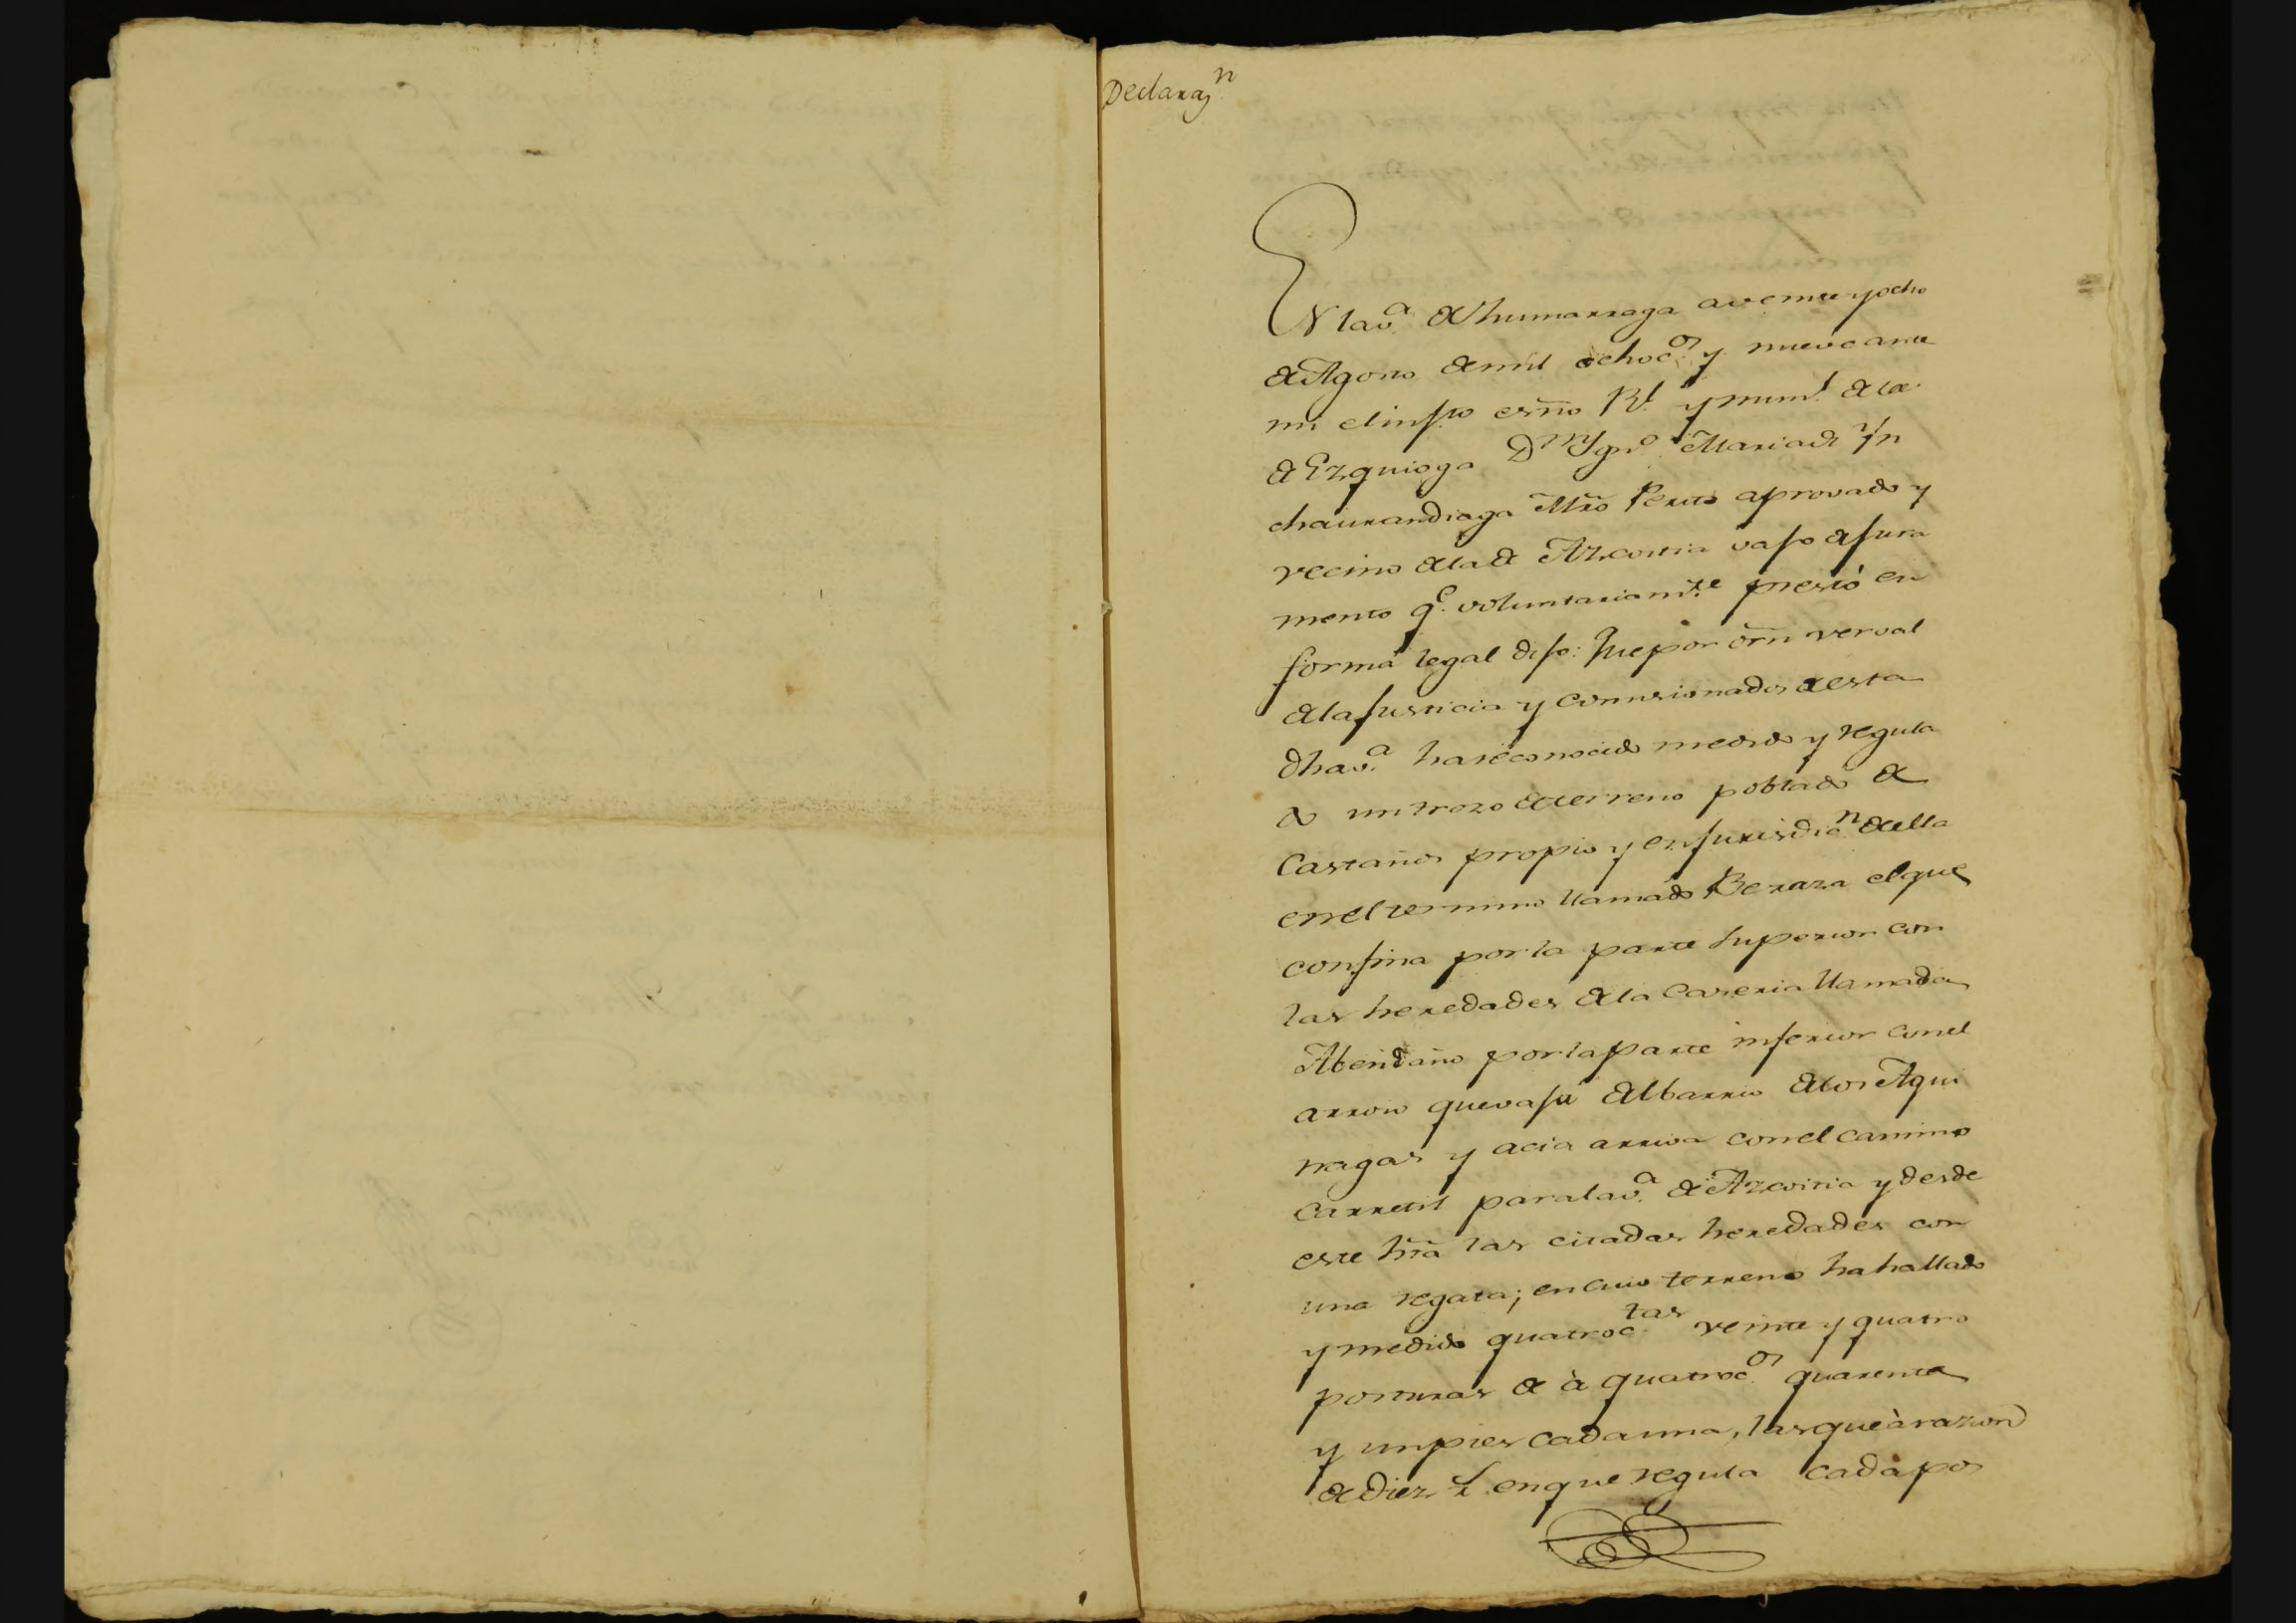 Declaraz.n
EN la v.a de Zhumarraga a veinte y ocho
de Agosto de mil ochoc.os y nueve ante
mi el infro esño Rl. y numl. de la
de Ezquioga Dn Ygn.o Maria de Yn
chaurandiaga Mro Perito aprovado y
vecino de la de Azcoitia vajo de jura
mento q.e voluntariam.te prestó en
forma legal dijo: Que por orn verval
de la Justicia y Comisionados de esta
dha v.a ha reconocido medido y regula
do un trozo de terreno poblado de
Castaños propio y en jurisdic.n de ella
en el termino llamado Beraza el que
confina por la parte superior con
las heredades de la Caseria llamada
Abendaño por la parte inferior con el
arroio que vaja del barrio de los Agui
rragas y acia arriva con el camino
carretil para la v.a de Azcoitia y desde
este hta las citadas heredades con
una regata; en cuio terreno ha hallado
y medido quatroc.tas veinte y quatro
posturas de à quatroc.os quarenta
y un pies cada una, las que à razon
de diez r.l en que regula cada pos